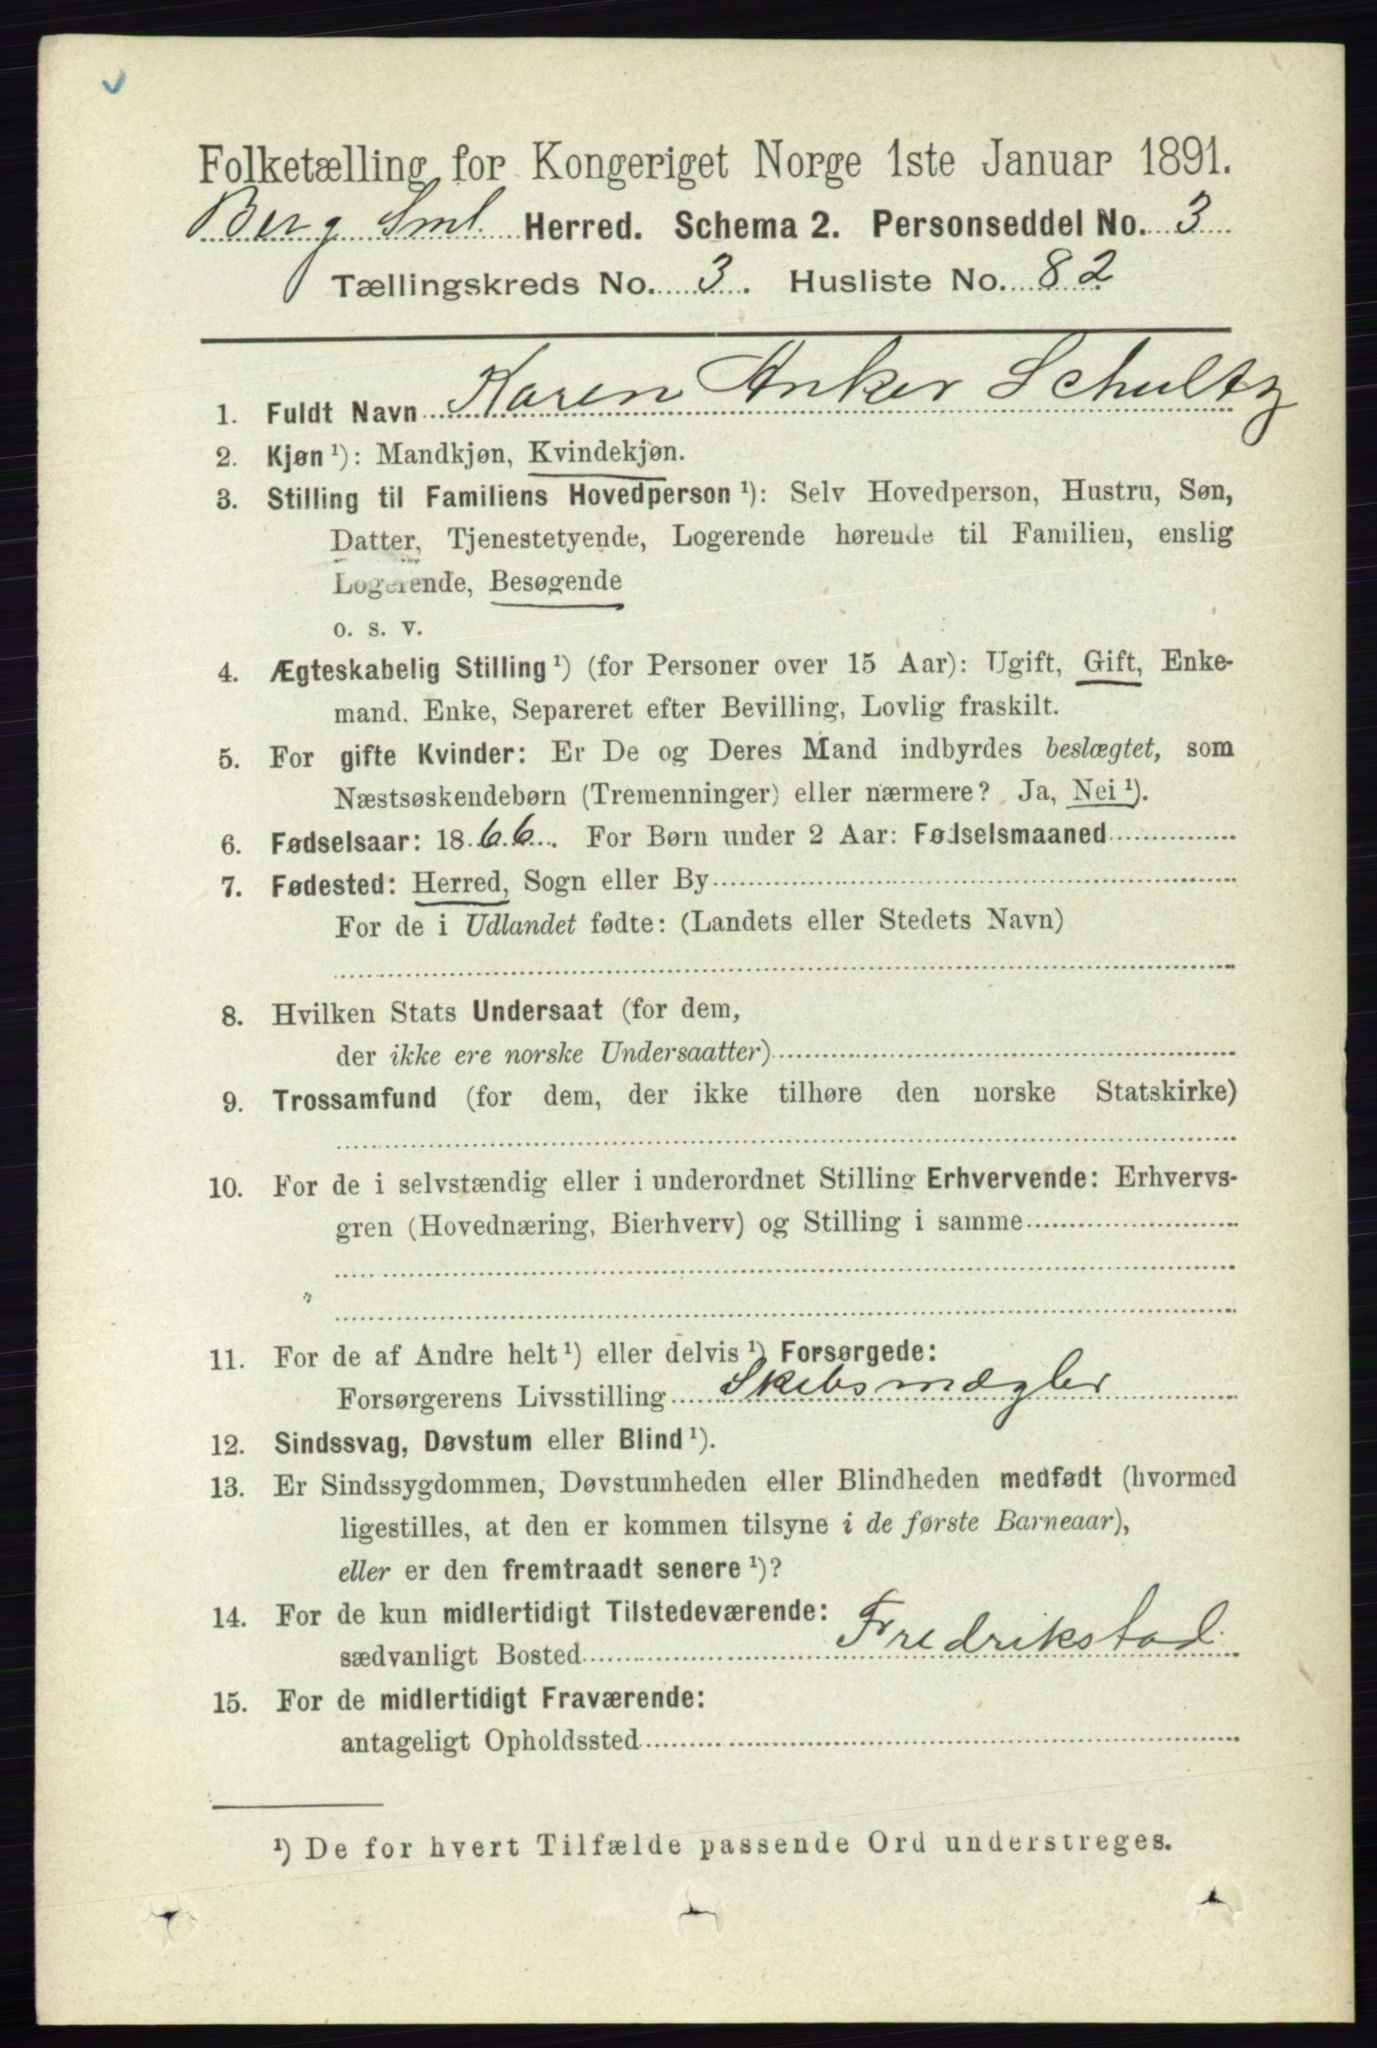 Folketælling for Kongeriget Norge 1ste Januar 1891.
Berg Sml. Herred. Schema 2. Personseddel No. 3
Tællingskreds No. 3. Husliste No. 82
1. Fuldt Navn Karen Anker Schultz
2. Kjøn ¹): Mandkjøn, Kvindekjøn.
3. Stilling til Familiens Hovedperson ¹): Selv Hovedperson, Hustru, Søn,
Datter, Tjenestetyende, Logerende hørende til Familien, enslig
Logerende, Besøgende
o. s. v.
4. Ægteskabelig Stilling ¹) (for Personer over 15 Aar): Ugift, Gift, Enke-
mand, Enke, Separeret efter Bevilling, Lovlig fraskilt.
5. For gifte Kvinder: Er De og Deres Mand indbyrdes beslægtet, som
Næstsøskendebørn (Tremenninger) eller nærmere? Ja, Nei ¹).
6. Fødselsaar: 1866. For Børn under 2 Aar: Fødselsmaaned
7. Fødested: Herred, Sogn eller By
For de i Udlandet fødte: (Landets eller Stedets Navn)
8. Hvilken Stats Undersaat (for dem,
der ikke ere norske Undersaatter)
9. Trossamfund (for dem, der ikke tilhøre den norske Statskirke)
10. For de i selvstændig eller i underordnet Stilling Erhvervende: Erhvervs-
gren (Hovednæring, Bierhverv) og Stilling i samme
11. For de af Andre helt ¹) eller delvis ¹) Forsørgede:
Forsørgerens Livsstilling Skibsmægler
12. Sindssvag, Døvstum eller Blind ¹).
13. Er Sindssygdommen, Døvstumheden eller Blindheden medfødt (hvormed
ligestilles, at den er kommen tilsyne i de første Barneaar),
eller er den fremtraadt senere ¹)?
14. For de kun midlertidigt Tilstedeværende:
sædvanligt Bosted Fredrikstad.
15. For de midlertidigt Fraværende:
antageligt Opholdssted
¹) De for hvert Tilfælde passende Ord understreges.